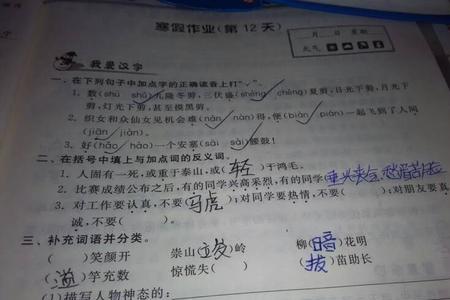 寒假作业(第 12 天)
月 日 星期
天气
我要汉字
一、在下列句子中加点字的正确读音上打“√”。
1. 数(shǔ shù)九隆冬剪,三伏盛(shèng chéng)夏剪,日光下剪,月光下
剪,灯光下剪,甚至摸黑剪。
2. 织女和众仙女见机会难(nán nàn)得,便(biàn pián)一起飞到了人间
(jiān jiàn)。
3. 好(hǎo hào)一个安塞(sāi sài)腰鼓!
二、在括号中填上与加点词的反义词。
1. 人固有一死,或重于泰山,或(轻)于鸿毛。
2. 比赛成绩公布之后,有的同学兴高采烈,有的同学
3. 对工作要认真,不要(马虎);对同学要热情,不要( );对朋友要真
诚,不要( )。
三、补充词语并分类。
( )笑颜开 崇山( )岭 柳(暗)花明
(滥)竽充数 惊慌失( ) (拔)苗助长
(1)描写人物神态的: